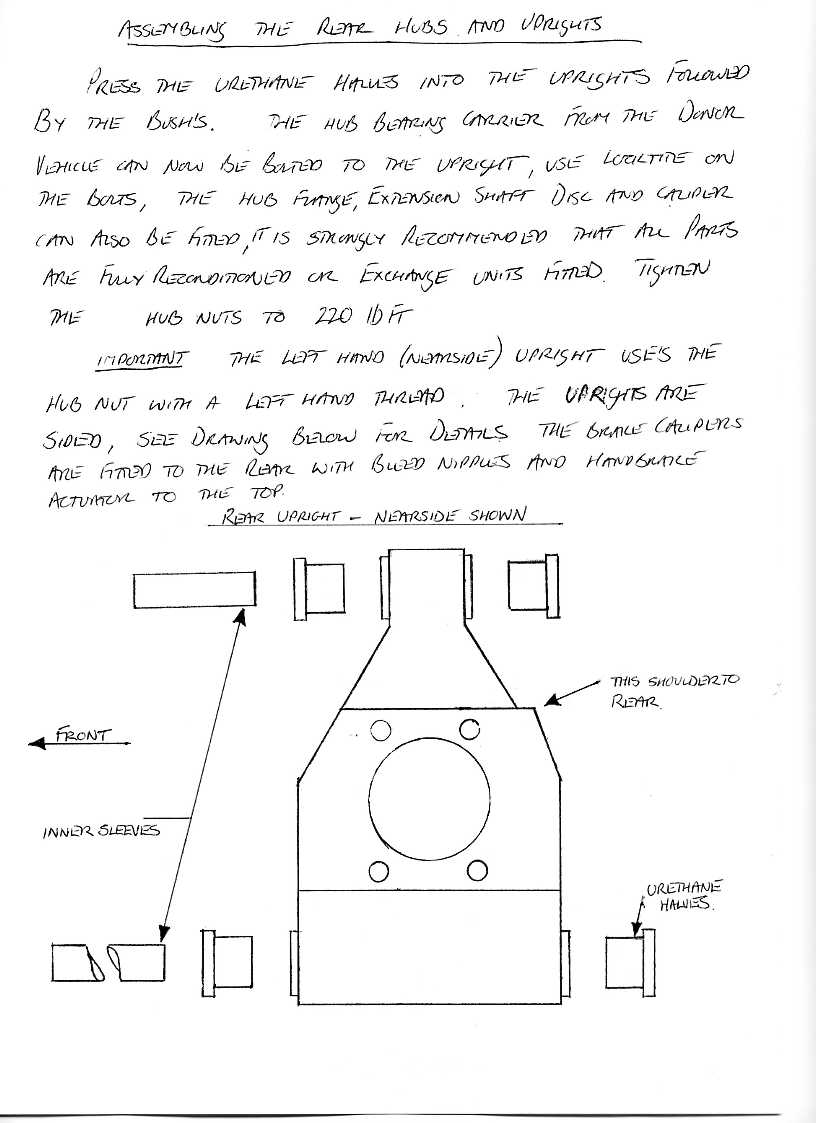 ASSEMBLING THE REAR HUBS AND UPRIGHTS
PRESS THE URETHANE HALVES INTO THE UPRIGHTS FOLLOWED
BY THE BUSH'S. THE HUB BEARING CARRIER FROM THE DONOR
VEHICLE CAN NOW BE BOLTED TO THE UPRIGHT, USE LOCTITE ON
THE BOLTS, THE HUB FLANGE, EXTENSION SHAFT DISC AND CALIPER
CAN ALSO BE FITTED, IT IS STRONGLY RECOMMENDED THAT ALL PARTS
ARE FULLY RECONDITIONED OR EXCHANGE UNITS FITTED. TIGHTEN
THE HUB NUTS TO 220 lb FT
IMPORTANT THE LEFT HAND (NEARSIDE) UPRIGHT USE'S THE
HUB NUT WITH A LEFT HAND THREAD. THE UPRIGHTS ARE
SIDED, SEE DRAWING BELOW FOR DETAILS THE BRAKE CALIPERS
ARE FITTED TO THE REAR WITH BLEED NIPPLES AND HANDBRAKE
ACTUATOR TO THE TOP.
REAR UPRIGHT - NEARSIDE SHOWN
THIS SHOULDER TO
REAR.
FRONT
INNER SLEEVES
URETHANE
HALVES.